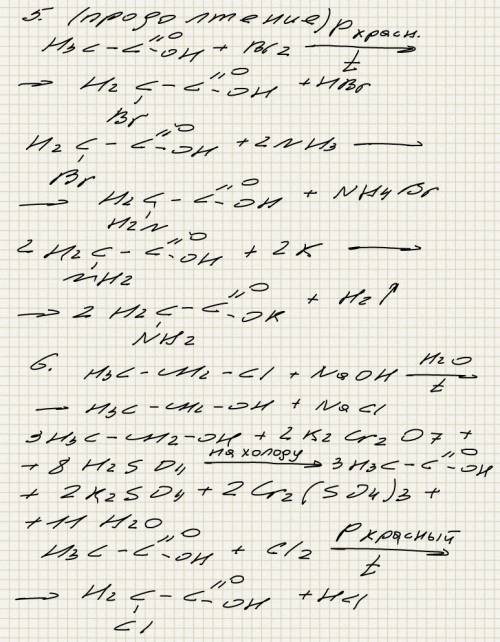 5. (продолжение) P красн.
H3C - C =O -OH + Br2 ⟶ t
⟶ H2C - C =O -OH + HBr
Br
H2C - C =O -OH + 2NH3 ⟶
Br
⟶ H2C - C =O -OH + NH4Br
H2N
2 H2C - C =O -OH + 2K ⟶
NH2
⟶ 2 H2C - C =O -OK + H2↑
NH2
6. H3C - CH2 - Cl + NaOH ⟶ H2O t
⟶ H3C - CH2 - OH + NaCl
3H3C - CH2 - OH + 2K2Cr2O7 +
+ 8 H2SO4 ⟶ на холоду 3H3C - C =O -OH
+ 2K2SO4 + 2Cr2(SO4)3 +
+ 11 H2O
H3C - C =O -OH + Cl2 ⟶ P красный t
⟶ H2C - C =O -OH + HCl
Cl